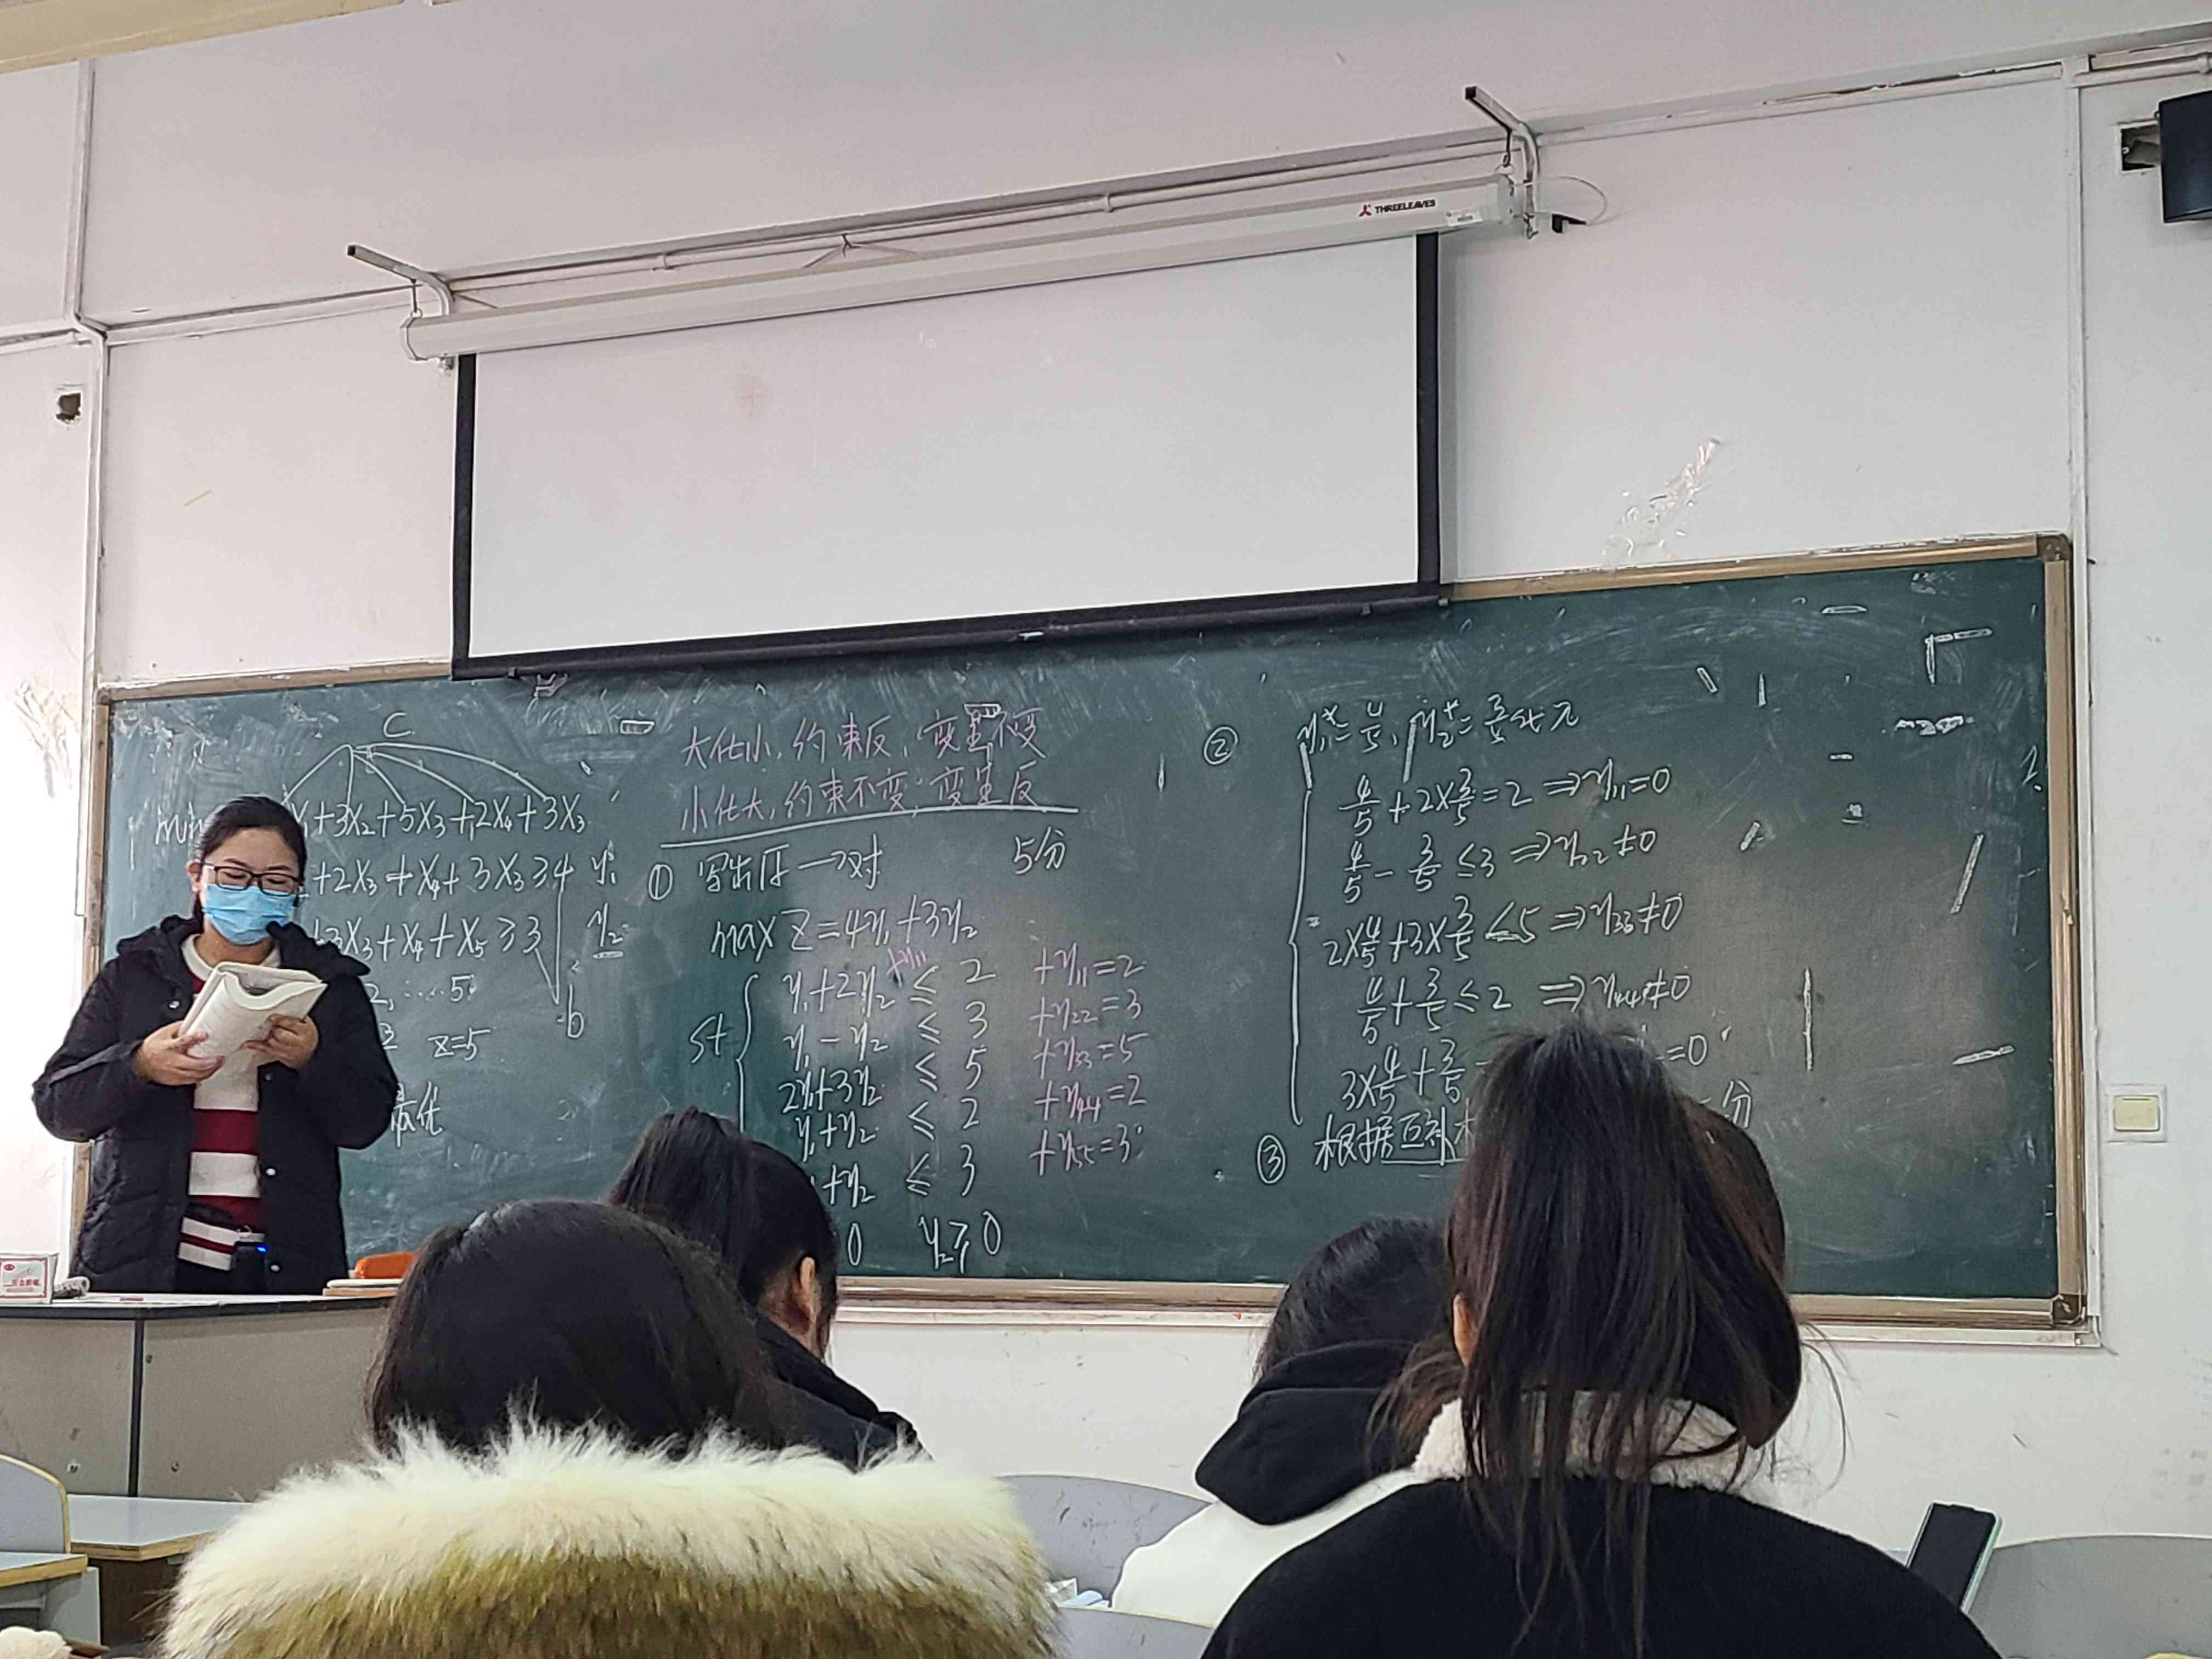 THREELEAVES
C
+3X₂+5X₃+2X₄+3X₃
+2X₃+X₄+3X₃≥4 y₁
+3X₃+X₄+X₅≥3 y₂
2,……5
Z=5
b
最优
大化小,约束反,变量不变
小化大,约束不变,变量反
① 写出原→对 5分
max Z=4y₁+3y₂
st
y₁+2y₂ +y₁₁ ≤ 2 +y₁₁=2
y₁-y₂ ≤ 3 +y₂₂=3
2y₁+3y₂ ≤ 5 +y₃₃=5
y₁+y₂ ≤ 2 +y₄₄=2
+y₂ ≤ 3 +y₅₅=3
0 y₂≥0
② y₁*=4/5, y₂*=3/5代入
4/5+2×3/5=2 ⇒y₁₁=0
4/5-3/5≤3 ⇒y₂₂≠0
2×4/5+3×3/5≤5 ⇒y₃₃≠0
4/5+3/5≤2 ⇒y₄₄≠0
3×4/5+3/5 =0
分
③ 根据互补